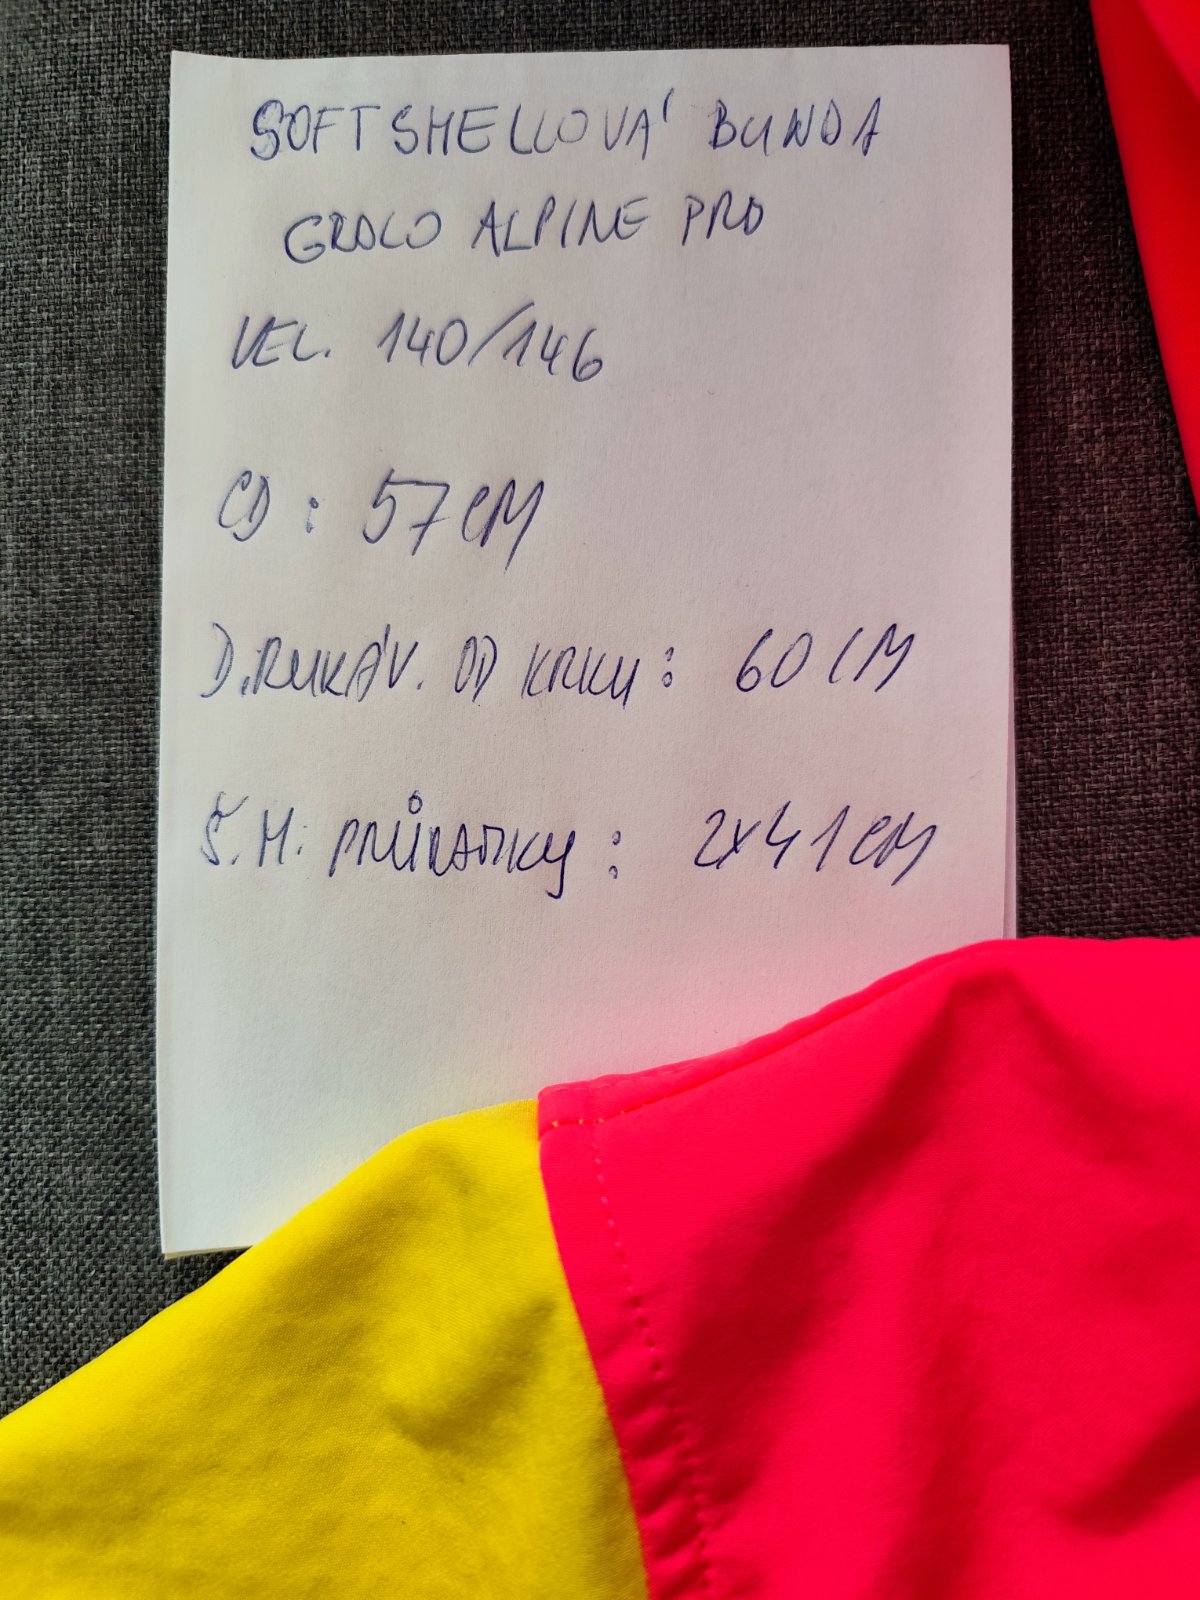 SOFTSHELLOVÁ BUNDA
GROLO ALPINE PRO
VEL. 140/146
CD: 57CM
D.RUKÁV. OD KRKU: 60 CM
Š.H. PRŮRAMKY: 2x41CM